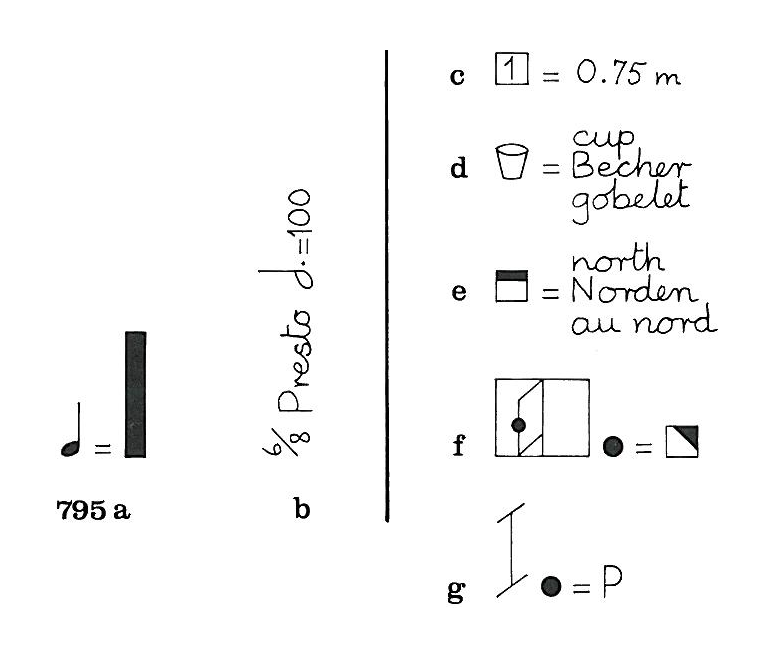 ♩ =
795 a
6/8 Presto 𝅗𝅥. = 100
b
c 1 = 0.75 m
d = cup
Becher
gobelet
e = north
Norden
au nord
f ● =
g ● = P